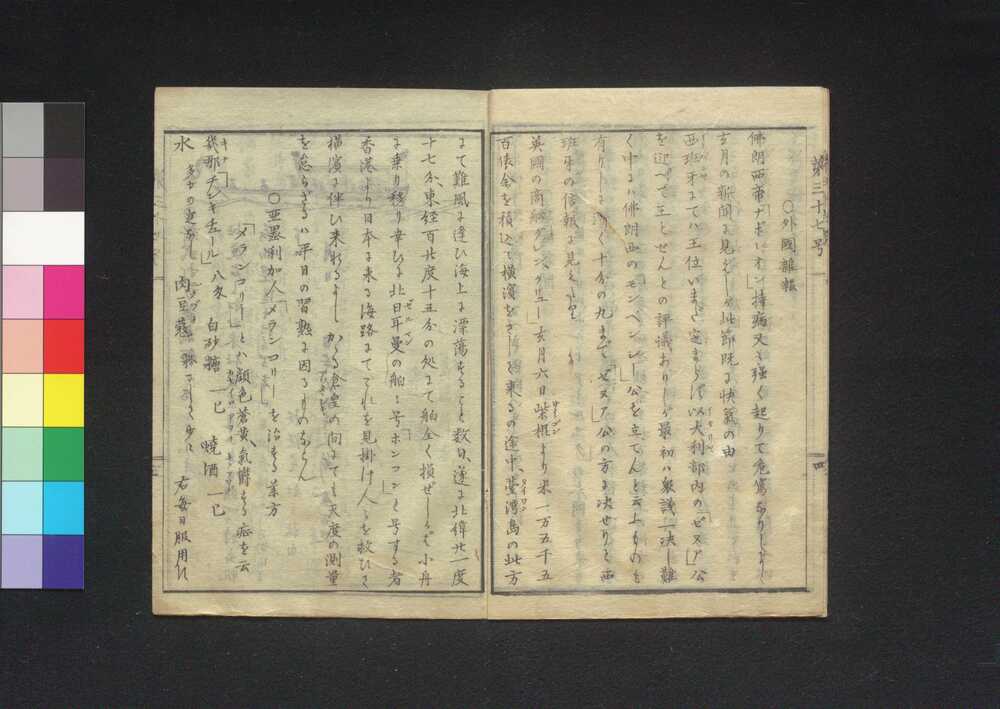 第三十七号
四
○外國雜報
佛朗西帝「ナポレオン」持病又々強く起りて危篤なりしよし
去月の新聞に見えしが此節既に快氣の由
西班牙にてハ王位いまだ定まらず以太利部内の「ゼヌア」公
を迎へて王とせんとの評議ありしが最初ハ衆議一決し難
く中にハ佛朗西の「モンペンシー」公を立てんと云ふものも
有りしが漸く十分の九まで「ゼヌア」公の方に决せりと西
班牙の信報に見えたり
英國の商船グレンタリュー去月六日柴棍より米一万五千五
サイゴン
百俵余を積込て横濱をさして来るの途中、臺湾島の北方
タイワン
にて難風に逢ひ海上に漂蕩すること数日、遂に北緯廿一度
十七分、東経百廿度十五分の処にて船全く損ぜしかば小舟
に乗り移り幸ひに北日耳曼の船「ホンコン」と号する者
ゼルマン
香港より日本に来る海路にてこれを見掛け人々を救ひて
横濱に伴ひ来れるよし かゝる倉皇の間にても天度の測量
を怠らざるハ平日の習熟に因るものならん
○亜墨利加人「メランコリー」を治する薬方
「メランコリー」とハ顔色蒼黄、氣欝する症を云
幾那「チンキチュール」八匁 白砂糖 一匕 焼酒 一匕
キナ
水 肉豆蔲 右毎日服用